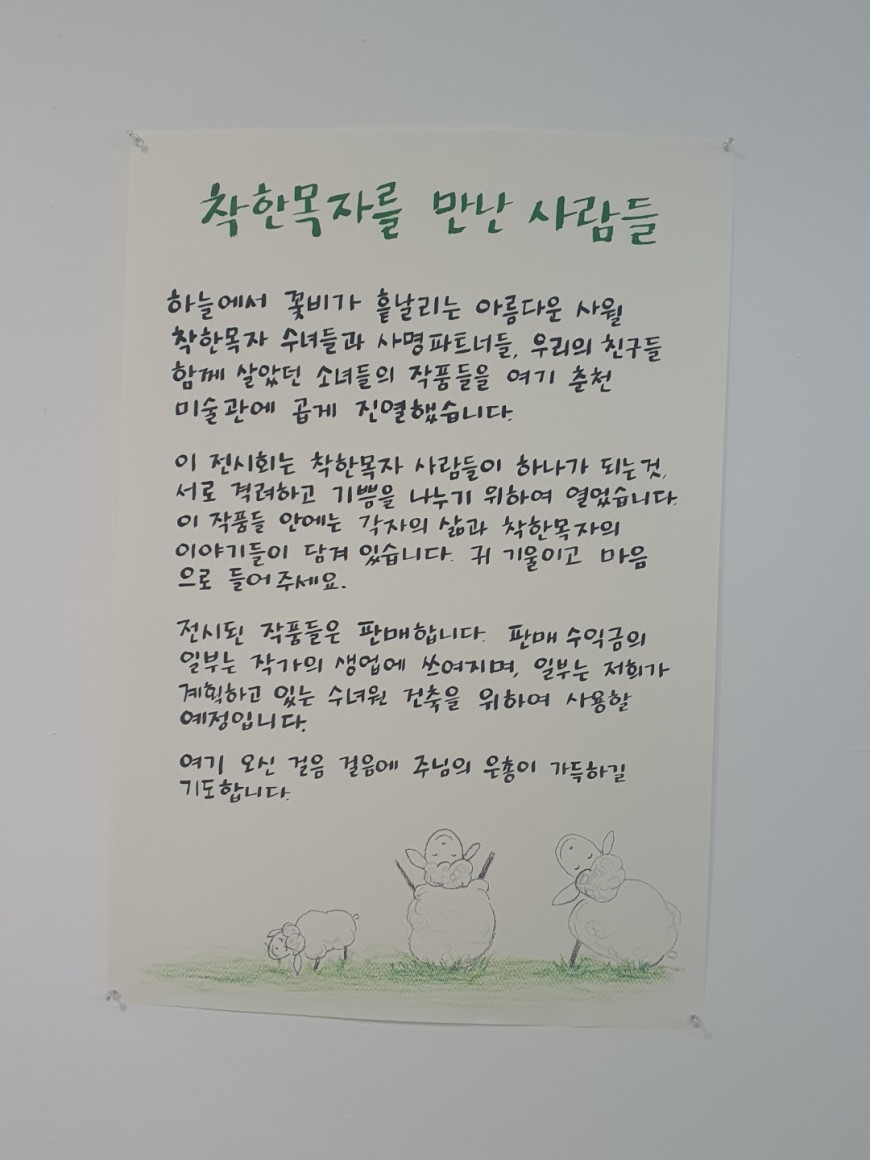 착한목자를 만난 사람들
하늘에서 꽃비가 흩날리는 아름다운 사월
착한목자 수녀들과 사명파트너들, 우리의 친구들
함께 살았던 소녀들의 작품들을 여기 춘천
미술관에 곱게 진열했습니다.
이 전시회는 착한목자 사람들이 하나가 되는것,
서로 격려하고 기쁨을 나누기 위하여 열었습니다.
이 작품들 안에는 각자의 삶과 착한목자의
이야기들이 담겨 있습니다. 귀 기울이고 마음
으로 들어주세요.
전시된 작품들은 판매합니다. 판매 수익금의
일부는 작가의 생업에 쓰여지며, 일부는 저희가
계획하고 있는 수녀원 건축을 위하여 사용할
예정입니다.
여기 오신 걸음 걸음에 주님의 은총이 가득하길
기도합니다.